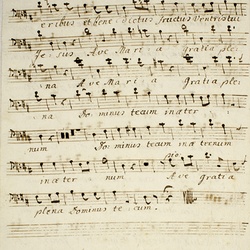 eribus et bene dictus fructus ventris tui
Je sus Ave Mari a gratia ple
na Ave Mari a Gratia ple
na Dominus tecum in æter
num Dominus tecum in æ trenum
in æter num Ave gratia
plena Dominus te cum.